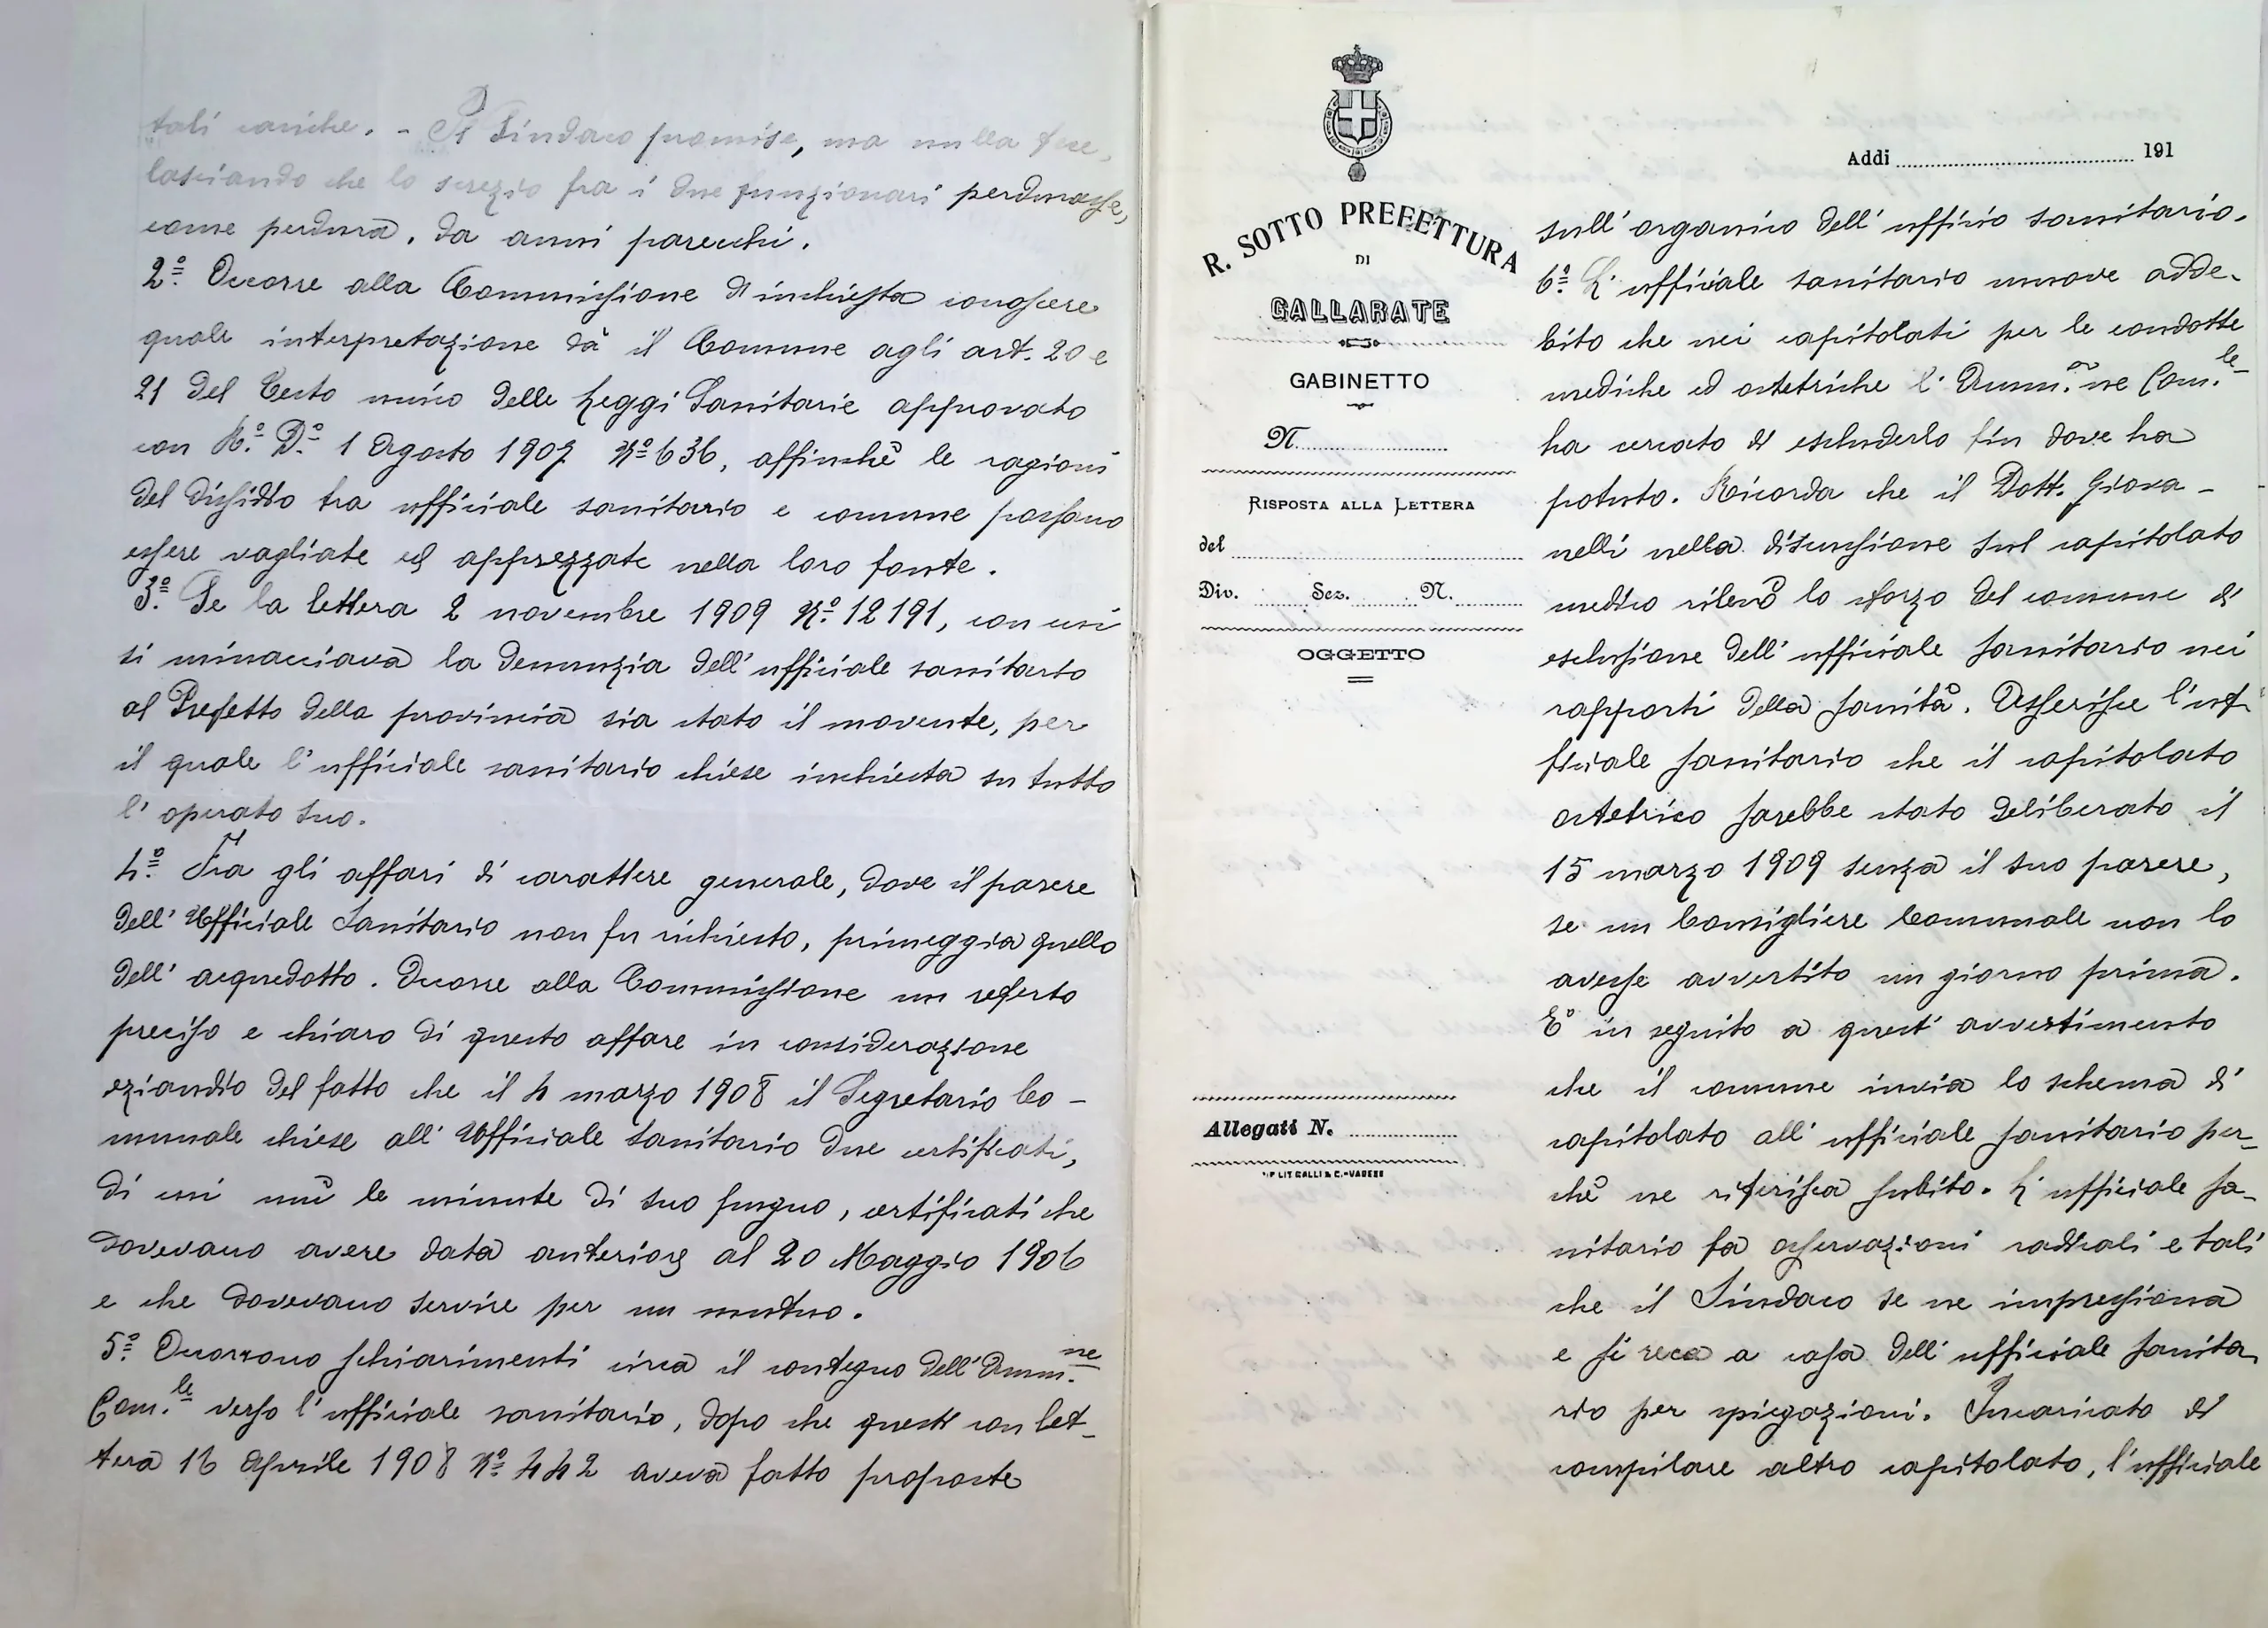 tali cariche. - Il Sindaco promise, ma nulla fece,
lasciando che lo screzio fra i due funzionari perdurasse,
come perdura, da anni parecchi.
2º. Occorre alla Commissione d'inchiesta conoscere
quale interpretazione dà il Comune agli art. 20 e
21 del Testo unico delle Leggi Sanitarie approvato
con R.º D.º 1 Agosto 1907 Nº 636, affinchè le ragioni
del dissidio tra ufficiale sanitario e comune possano
essere vagliate ed apprezzate nella loro fonte.
3º. Se la lettera 2 novembre 1909 Nº. 12191, con cui
si minacciava la denunzia dell'ufficiale sanitario
al Prefetto della provincia sia stato il movente, per
il quale l'ufficiale sanitario chiese inchiesta su tutto
l'operato suo.
4º. Fra gli affari di carattere generale, dove il parere
dell'Ufficiale Sanitario non fu richiesto, primeggia quello
dell'acquedotto. Occorre alla Commissione un referto
preciso e chiaro di questo affare in considerazione
eziandio del fatto che il 4 marzo 1908 il Segretario Co-
munale chiese all'Ufficiale sanitario due certificati,
di cui unì le minute di suo pugno, certificati che
dovevano avere data anteriore al 20 Maggio 1906
e che dovevano servire per un mutuo.
5º. Occorrono schiarimenti circa il contegno dell'Amm.ne
Com.le verso l'ufficiale sanitario, dopo che questi con let-
tera 16 Aprile 1908 Nº. 442 aveva fatto proposte
R. SOTTO PREFETTURA
DI
GALLARATE
GABINETTO
N.
RISPOSTA ALLA LETTERA
del
Div. Sez. N.
OGGETTO
Allegati N.
LIT GALLI & C.-VARESE
Addì 191
sull'organico dell'ufficio sanitario.
6º. L'ufficiale sanitario muove adde-
bito che nei capitolati per le condotte
mediche ed ostetriche l'Amm.ne Com.le
ha cercato di escluderlo fin dove ha
potuto. Ricorda che il Dott. Giova-
nelli nella discussione sul capitolato
medico rilevò lo sforzo del comune di
esclusione dell'ufficiale sanitario nei
rapporti della sanità. Asserisce l'uf-
ficiale sanitario che il capitolato
ostetrico sarebbe stato deliberato il
15 marzo 1909 senza il suo parere,
se un Consigliere Comunale non lo
avesse avvertito un giorno prima.
E' in seguito a quest'avvertimento
che il comune invia lo schema di
capitolato all'ufficiale sanitario per-
chè ne riferisca subito. L'ufficiale sa-
nitario fa osservazioni radicali e tali
che il Sindaco se ne impressiona
e si reca a casa dell'ufficiale sanita-
rio per spiegazioni. Incaricato di
compilare altro capitolato, l'ufficiale